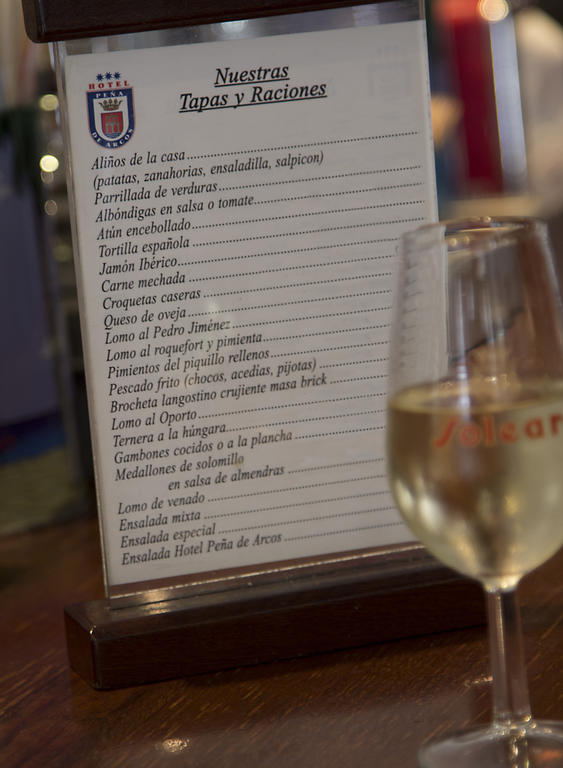 HOTEL
PEÑA
DE ARCOS
Nuestras
Tapas y Raciones
Aliños de la casa
(patatas, zanahorias, ensaladilla, salpicon)
Parrillada de verduras
Albóndigas en salsa o tomate
Atún encebollado
Tortilla española
Jamón Ibérico
Carne mechada
Croquetas caseras
Queso de oveja
Lomo al Pedro Jiménez
Lomo al roquefort y pimienta
Pimientos del piquillo rellenos
Pescado frito (chocos, acedias, pijotas)
Brocheta langostino crujiente masa brick
Lomo al Oporto
Ternera a la húngara
Gambones cocidos o a la plancha
Medallones de solomillo
en salsa de almendras
Lomo de venado
Ensalada mixta
Ensalada especial
Ensalada Hotel Peña de Arcos
Solear